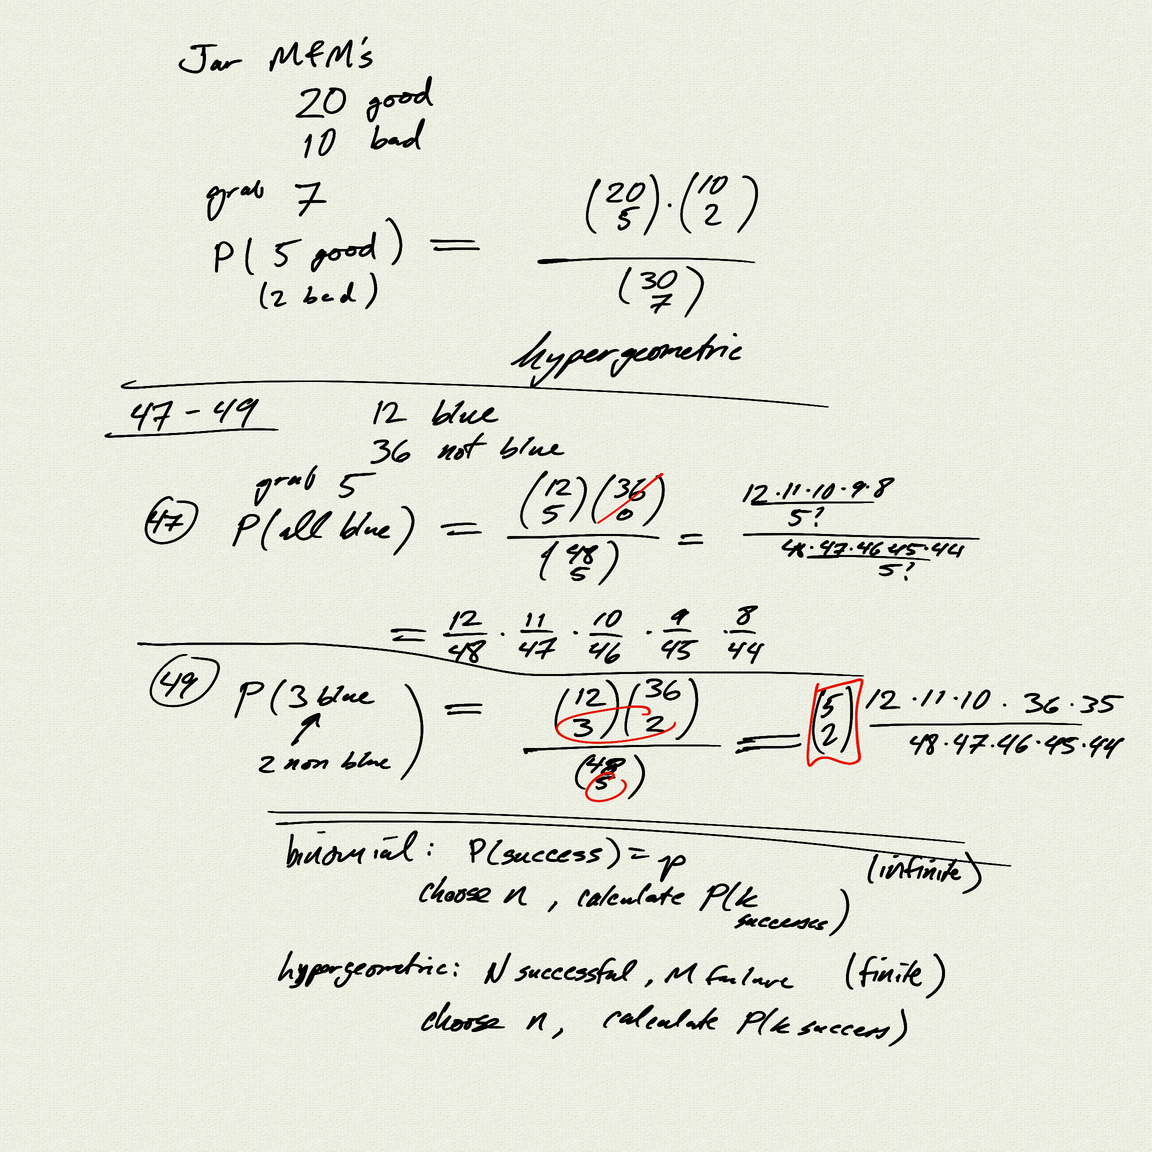 Jar M&M's
20 good
10 bad
grab 7
P( 5 good (2 bad) ) = (20 5)·(10 2) / (30 7)
hypergeometric
47 - 49 12 blue
36 not blue
grab 5
47 P(all blue) = (12 5)(36 0) / (48 5) = 12·11·10·9·8 / 5! / 48·47·46·45·44 / 5!
= 12/48 · 11/47 · 10/46 · 9/45 · 8/44
49 P(3 blue 2 non blue) = (12 3)(36 2) / (48 5) = (5 2) 12·11·10·36·35 / 48·47·46·45·44
binomial: P(success) = p (infinite)
choose n, calculate P(k successes)
hypergeometric: N successful, M failure (finite)
choose n, calculate P(k success)